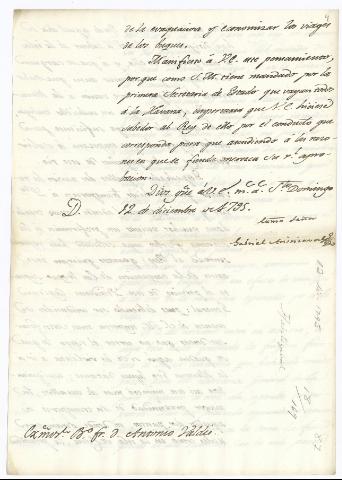 de la evacuacion y economizar los viages
de los buques.
Manifiesto á V.E. este pensamiento,
porque como S.M. tiene mandado por la
primera Secretaria de Estado que vayan todos
á la Havana, importara que V.E. hiciese
sabedor al Rey de ello por el conducto que
corresponda para que atendiendo á las razo-
nes en que se funda merezca su rl. apro-
bacion.
Dios gue. á V.E. ms. as. Sto. Domingo
12 de diciembre de 1795.
Exmo. Señor
Gabriel
12 Dic. 1795
Exmo. Sor. Bo. fr. d. Antonio Valdés.